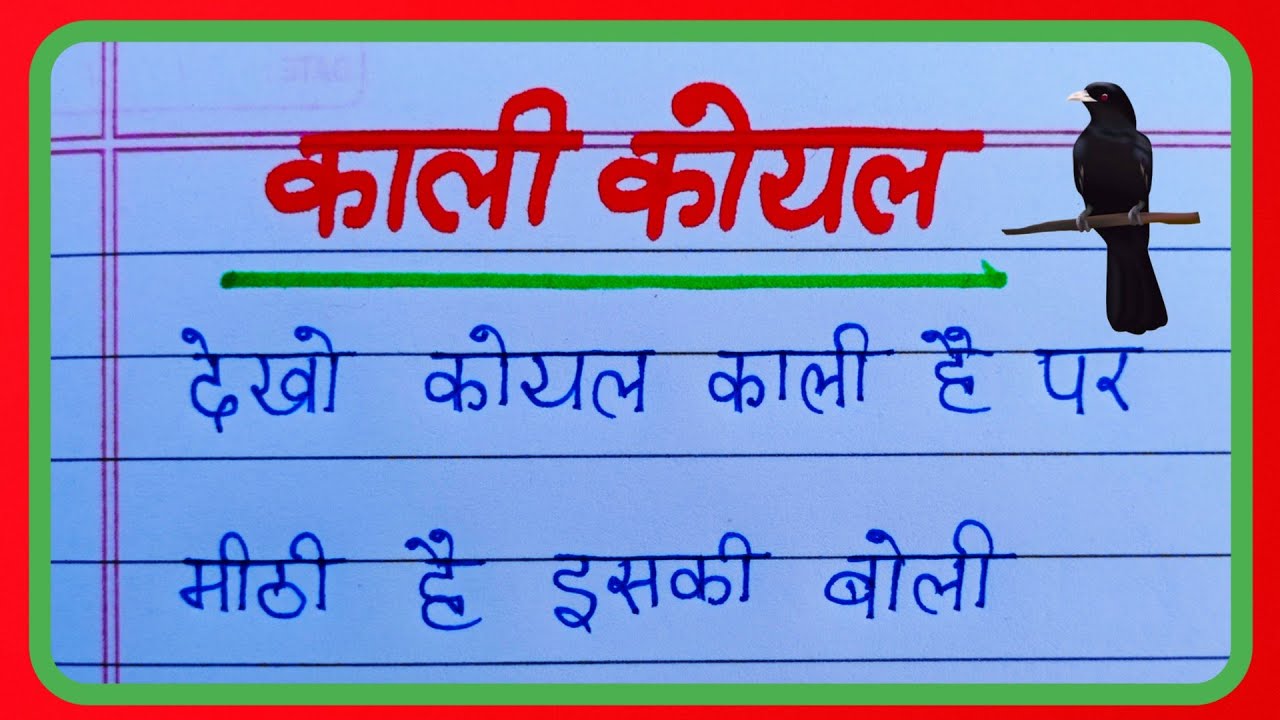 काली कोयल
देखो कोयल काली है पर
मीठी है इसकी बोली